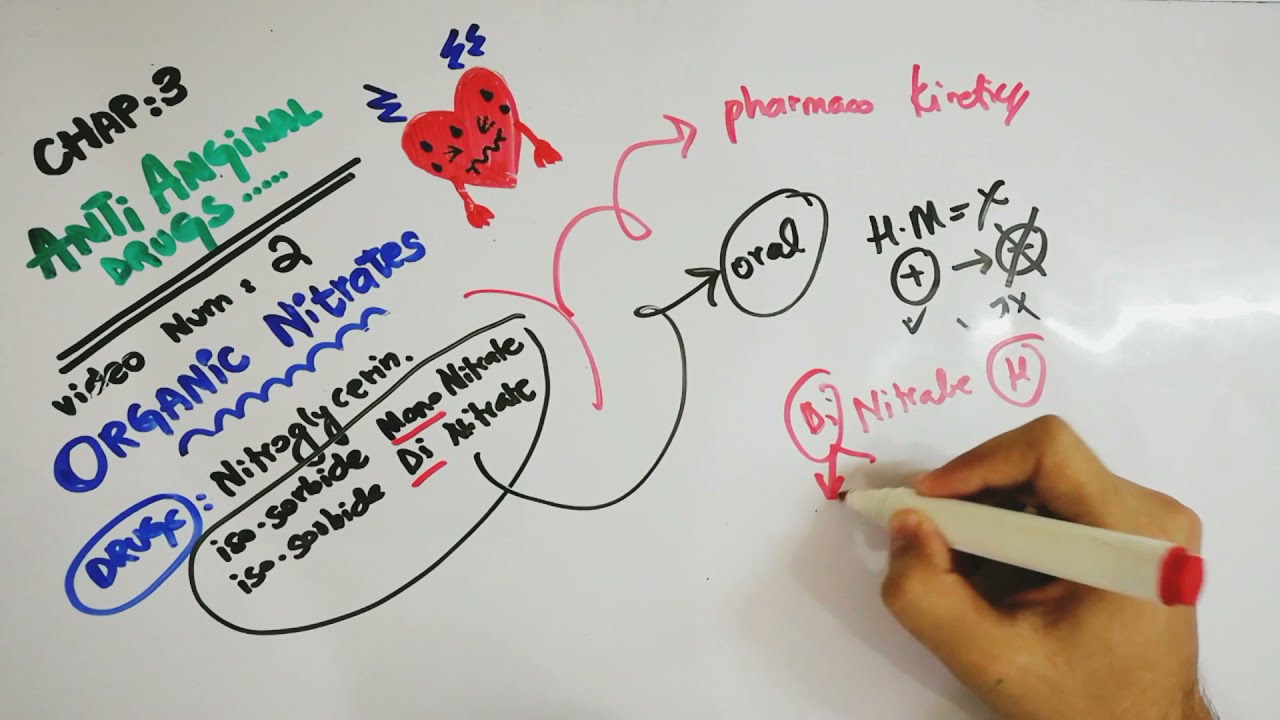 CHAP:3
ANTI ANGINAL
DRUGS.....
video Num: 2
ORGANIC Nitrates
DRUGS: Nitroglycerin.
iso-sorbide Mono Nitrate
iso-sorbide Di Nitrate
pharmaco kinetics
oral
H.M = X
+ →
Di Nitrate H